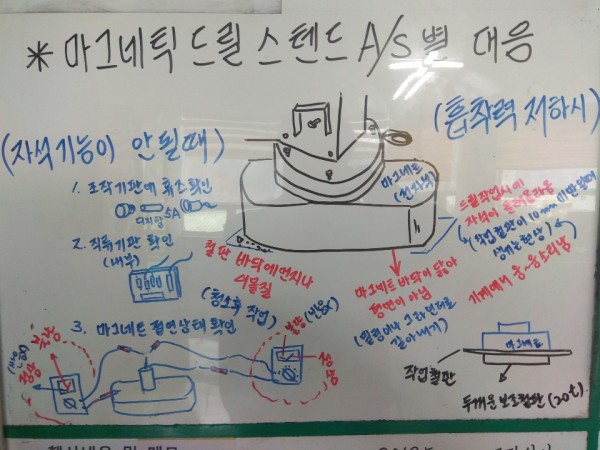 * 마그네틱 드릴 스텐드 A/S별 대응
(자석기능이 안될때)
1. 조작기판에 휴즈확인
5A
2. 직류기판 확인
(내부)
3. 마그네트 절연상태 확인
불량
정상
마그네트
(전자석)
철판 바닥에 먼지나
이물질
(청소후 작업)
마그네트 바닥이 닳아
평면이 아님
(밀링이나 그라인더로
갈아내기)
불량
정상
(흡착력 저하시)
드릴작업시에
자석이 들려올라옴
(작업철판이 10mm 미만일때
생기는 현상)
기계에서 웅~웅소리남
마그네트
작업철판
두꺼운 보조철판 (20t)